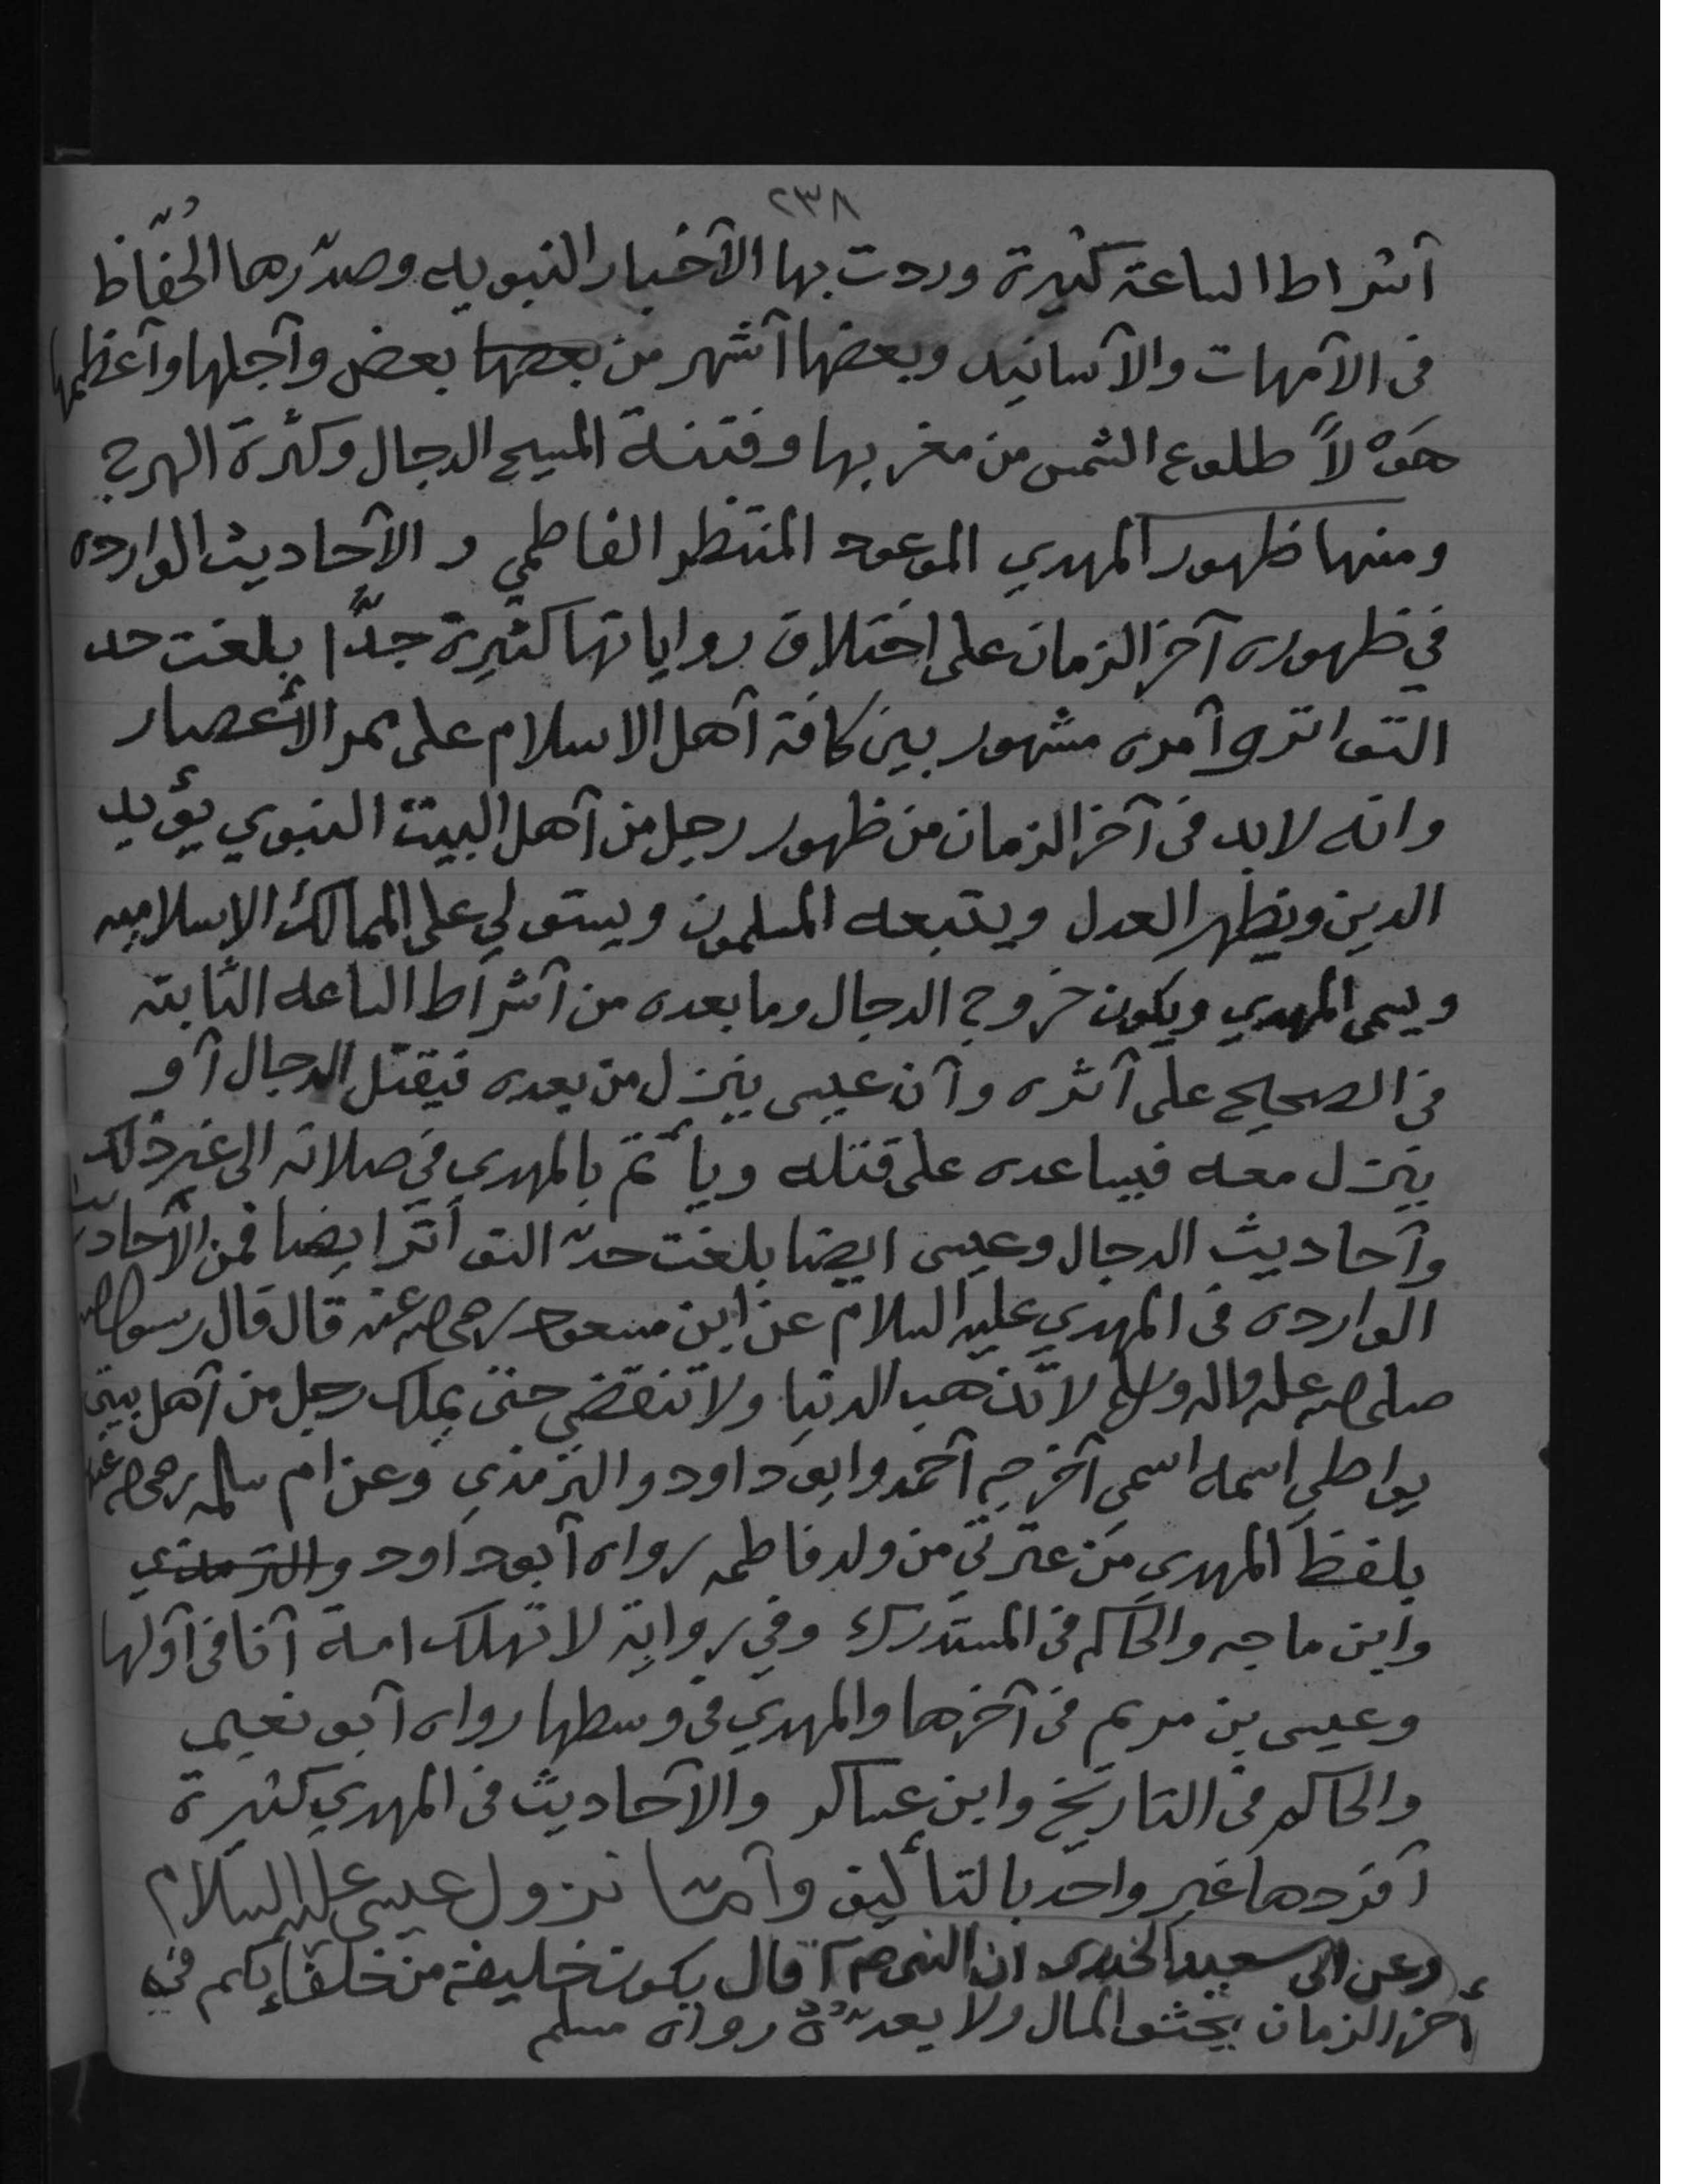 ٢٣٨
آشراط الساعة كثيرة وردت بها الآخبار النبويه وصدّرها الحُفّاظ
فى الآمهات والآسانيد وبعضها آشهر من بعضها بعض وآجلها وآعظمها
هَوْلاً طلوع الشمس من مغربها وفتنة المسيح الدجال وكثرة الهرج
ومنها ظهور المهدي الموعود المنتظر الفاطمي و الآحاديث الوارده
في ظهوره آخر الزمان على اختلاف رواياتها كثيرة جدًّا بلغت حد
التواتر وآمره مشهور بين كافة آهل الاسلام على ممر الأعصار
وانه لابد فى آخر الزمان من ظهور رجل من آهل البيت النبوي يؤيد
الدين ويظهر العدل ويتبعه المسلمون ويستولي على الممالك الإسلاميه
ويسمى المهدي ويكون خروج الدجال وما بعده من آشراط الساعه الثابتة
في الصحيح على آثره وآن عيسى ينزل من بعده فيقتل الدجال آو
ينزل معه فيساعده على قتله ويأتم بالمهدي في صلاته الى غير ذلك
وآحاديث الدجال وعيسى ايضا بلغت حدّ التواتر ايضا فمن الأحاديث
الوارده فى المهدي عليه السلام عن ابن مسعود رضي الله عنه قال قال رسول الله
صلى الله عليه وآله وسلم لا تذهب الدنيا ولا تنقضي حتى يملك رجل من آهل بيتي
يواطي اسمه اسمي آخرجه آحمد وابو داود والترمذي وعن ام سلمه رضي الله عنها
بلفظ المهدي من عترتي من ولد فاطمه رواه آبو داود والترمذي
وابن ماجه والحاكم فى المستدرك وفي رواية لا تهلك امة آنا فى آولها
وعيسى بن مريم فى آخرها والمهدي فى وسطها رواه آبو نعيم
والحاكم فى التاريخ وابن عساكر والآحاديث فى المهدي كثيرة
آفردها غير واحد بالتأليف وآمّا نزول عيسى عليه السلام
وعن ابى سعيد الخدرى ان النبى صم قال يكون خليفة من خلفائكم في
أخر الزمان يحثو المال ولا يعدّهُ رواه مسلم